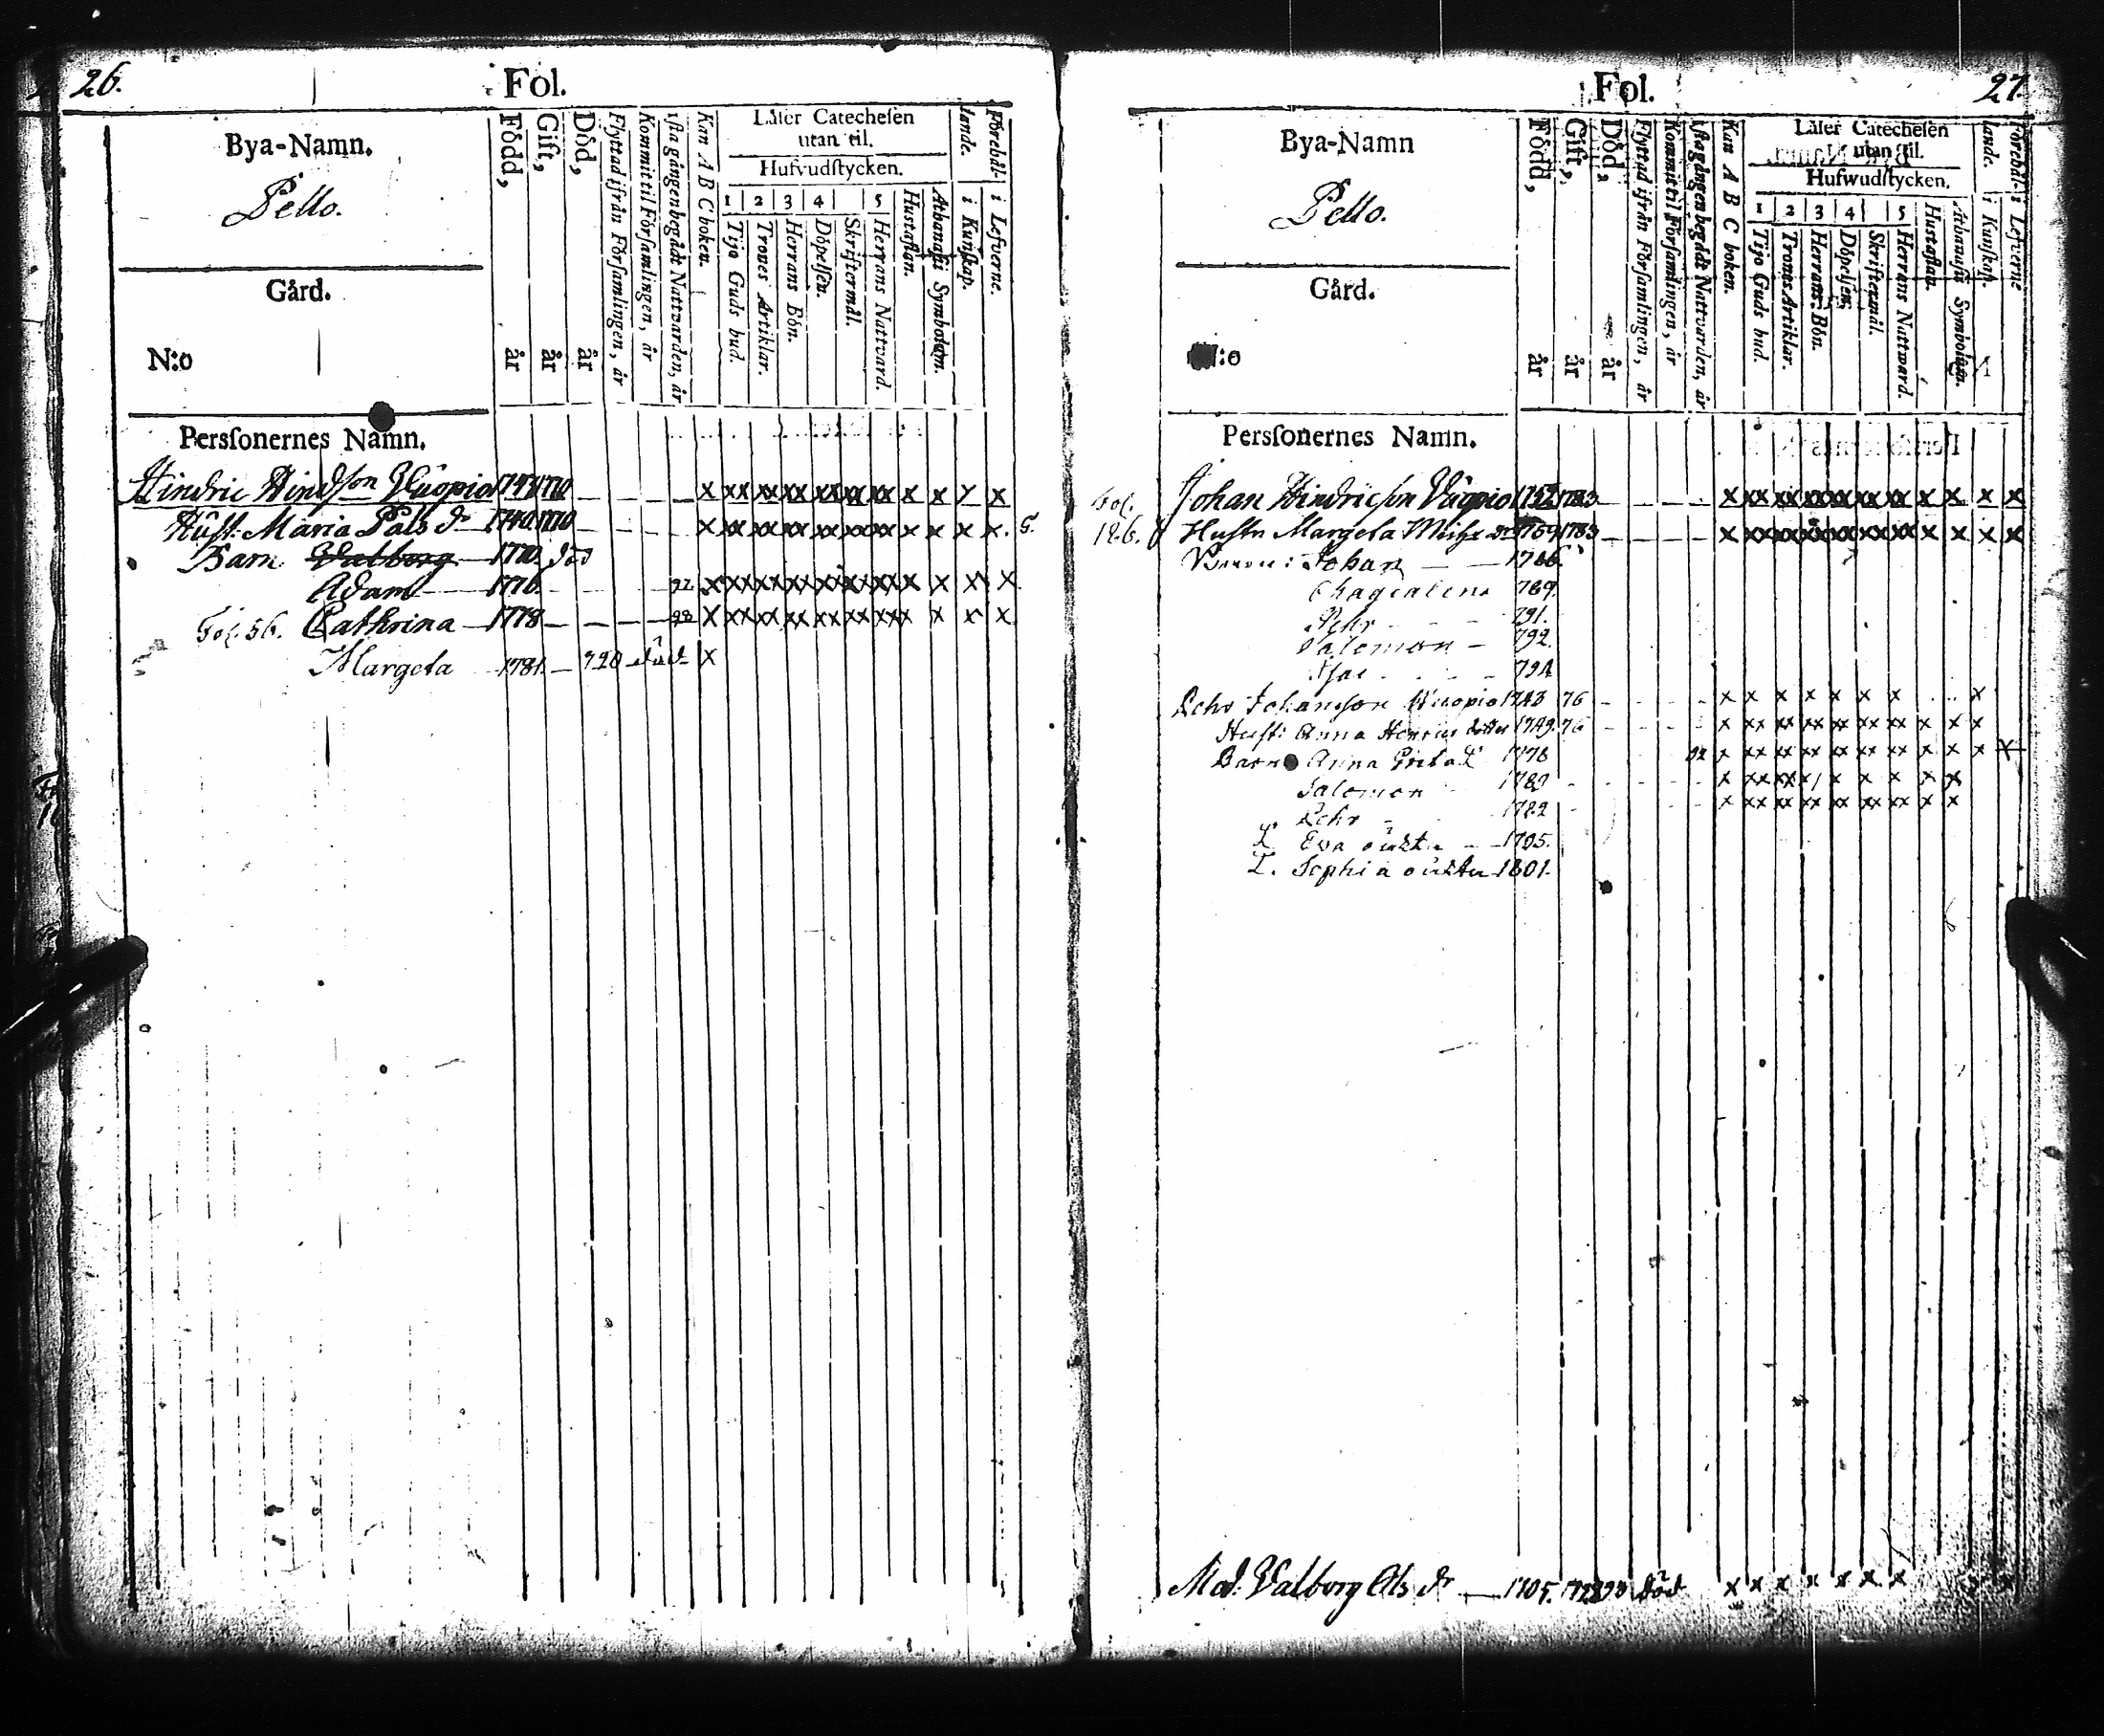 26.
Fol.
Bya-Namn.
Pello.
Gård.
N:o
Född, år
Gift, år
Död, år
Flyttad ifrån Församlingen, år
Kommit til Församlingen, år
1sta gången begådt Nattvarden, år
Kan A B C boken.
Läser Catechesen
utan til.
Hufvudstycken.
1 2 3 4 5
Tijo Guds bud.
Trones Artiklar.
Herrans Bön.
Döpelsen.
Skriftermål.
Herrans Nattvard.
Hustaflan.
Athanasii Symbolum.
Förehål-
lande.
i Kunskap.
i Lefverne.
Perssonernes Namn.
Hindric Hindsson Wuopio 1770 — — — — x xx xx xx xx xx xx x x x x
Hust: Maria Pals dr 1740. 1770 — x xx xx xx xx xx xx x x x x. G.
Barn Walborg 1770. död
Adam 1776. 92 x xx xx xx xx xx xx x x xx x
Fol. 56. Cathrina — 1778 — — — — x xx xx xx xx xx xx x x x x
Margeta 1781. — död x
27.
Fol.
Bya-Namn
Pello.
Gård.
:o
Född, år
Gift, år
Död, år
Flyttad ifrån Församlingen, år
Kommit til Församlingen, år
1sta gången begådt Nattvarden, år
Kan A B C boken.
Läser Catechesen
utan til.
Hufwudstycken.
1 2 3 4 5
Tijo Guds bud.
Trones Artiklar.
Herrans Bön.
Döpelsen.
Skriftermål.
Herrens Nattward.
Hustaflan.
Athanasii Symbolum.
Förehål-
lande.
i Kunskap.
i Lefverne
Perssonernes Namn.
Fol. Johan Hindricsson Wuopio 1752 1783 — — — — x xx xx xx xx xx xx x x x x
Hustr Margeta 1759 1783 — — — — x xx xx xx xx xx xx x x x x
Johan — — 1786
789.
Pehr - - - 791.
Salomon — 792.
794
Pehr Johansson Wuopio 1743 76 - - - - x x x x x x x x
Hust: Anna Henrics dotter 1749. 76 - - - - x xx xx xx xx xx xx x x x
Barn Anna Greta 1778 92 x xx xx xx xx xx xx x x x x
Salomon 1780 x xx xx x x x x x x
Pehr - 1782 x xx xx xx xx xx xx x x
Eva - - 1795.
Sophia 1801.
Mod: Valborg Ols dr — 1705. död x x x x x x x